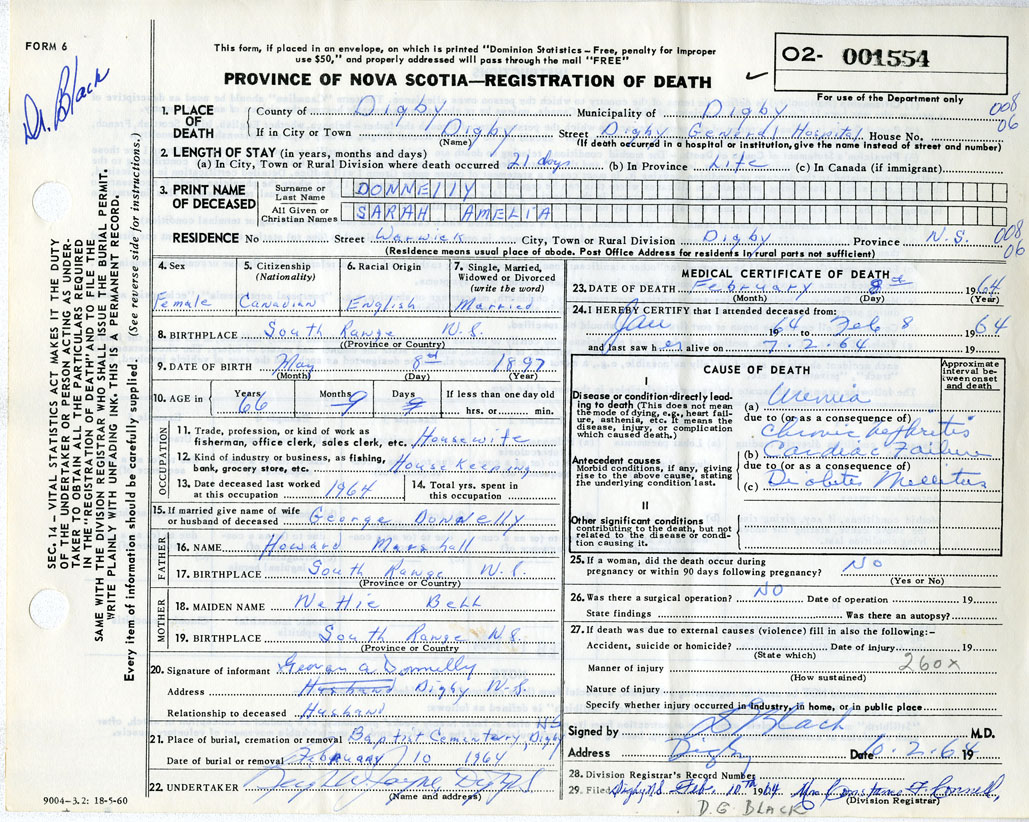 FORM 6
Dr. Black
This form, if placed in an envelope, on which is printed "Dominion Statistics – Free, penalty for improper
use $50," and properly addressed will pass through the mail "FREE"
PROVINCE OF NOVA SCOTIA—REGISTRATION OF DEATH
02- 001554
For use of the Department only
008
06
1. PLACE OF DEATH
County of Digby Municipality of Digby
If in City or Town Digby Street Digby General Hospital House No.
(Name) (If death occurred in a hospital or institution, give the name instead of street and number)
2. LENGTH OF STAY (in years, months and days)
(a) In City, Town or Rural Division where death occurred 21 days (b) In Province Life (c) In Canada (if immigrant)
3. PRINT NAME OF DECEASED
Surname or Last Name DONNELLY
All Given or Christian Names SARAH AMELIA
RESIDENCE No Street Warwick City, Town or Rural Division Digby Province N.S. 008
06
(Residence means usual place of abode. Post Office Address for residents in rural parts not sufficient)
4. Sex
Female
5. Citizenship (Nationality)
Canadian
6. Racial Origin
English
7. Single, Married, Widowed or Divorced (write the word)
Married
8. BIRTHPLACE South Range N.S.
(Province or Country)
9. DATE OF BIRTH May 8th 1897
(Month) (Day) (Year)
10. AGE in Years 66 Months 9 Days If less than one day old hrs. or min.
OCCUPATION
11. Trade, profession, or kind of work as
fisherman, office clerk, sales clerk, etc. Housewife
12. Kind of industry or business, as fishing,
bank, grocery store, etc. House Keeping
13. Date deceased last worked at this occupation 1964
14. Total yrs. spent in this occupation
15. If married give name of wife
or husband of deceased George Donnelly
FATHER
16. NAME Howard Marshall
17. BIRTHPLACE South Range N.S.
(Province or Country)
MOTHER
18. MAIDEN NAME Nettie Bell
19. BIRTHPLACE South Range N.S.
(Province or Country)
20. Signature of informant George A. Donnelly
Address Husband Digby N.S.
Relationship to deceased Husband
21. Place of burial, cremation or removal Baptist Cementerry, Digby NS
Date of burial or removal February 10 1964
22. UNDERTAKER
(Name and address)
9004-3.2: 18-5-60
MEDICAL CERTIFICATE OF DEATH
23. DATE OF DEATH February 8th 1964
(Month) (Day) (Year)
24. I HEREBY CERTIFY that I attended deceased from:
Jan 1964 to Feb 8 1964
and last saw her alive on 7.2.64 19
CAUSE OF DEATH
Approximate interval between onset and death
I
Disease or condition directly leading to death (This does not mean the mode of dying, e.g., heart failure, asthenia, etc. It means the disease, injury, or complication which caused death.)
(a) Uremia
due to (or as a consequence of)
Chronic Nephritis
Antecedent causes
Morbid conditions, if any, giving rise to the above cause, stating the underlying condition last.
(b) Cardiac Failure
due to (or as a consequence of)
(c) Diabetes Mellitus
II
Other significant conditions
contributing to the death, but not related to the disease or condition causing it.
25. If a woman, did the death occur during
pregnancy or within 90 days following pregnancy? NO
(Yes or No)
26. Was there a surgical operation? NO Date of operation 19
State findings Was there an autopsy?
27. If death was due to external causes (violence) fill in also the following:–
Accident, suicide or homicide? Date of injury 19
(State which)
260x
Manner of injury
(How sustained)
Nature of injury
Specify whether injury occurred in industry, in home, or in public place
Signed by D Black M.D.
Address Digby Date 2.68 19
28. Division Registrar's Record Number
29. Filed Digby NS Feb. 10th 1964
(Division Registrar)
D.G. BLACK
SEC. 14 – VITAL STATISTICS ACT MAKES IT THE DUTY
OF THE UNDERTAKER OR PERSON ACTING AS UNDER-
TAKER TO OBTAIN ALL THE PARTICULARS REQUIRED
IN THE "REGISTRATION OF DEATH" AND TO FILE THE
SAME WITH THE DIVISION REGISTRAR WHO SHALL ISSUE THE BURIAL PERMIT.
WRITE PLAINLY WITH UNFADING INK. THIS IS A PERMANENT RECORD.
Every item of information should be carefully supplied. (See reverse side for instructions.)